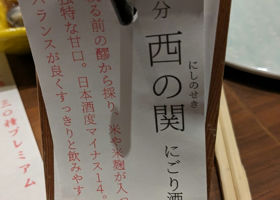 分 西の関 にごり酒
にしのせき
る前の醪から採り、米や米麹が入っ
独特な甘口。日本酒度マイナス14。
バランスが良くすっきりと飲みやす
三〇種プレミアム